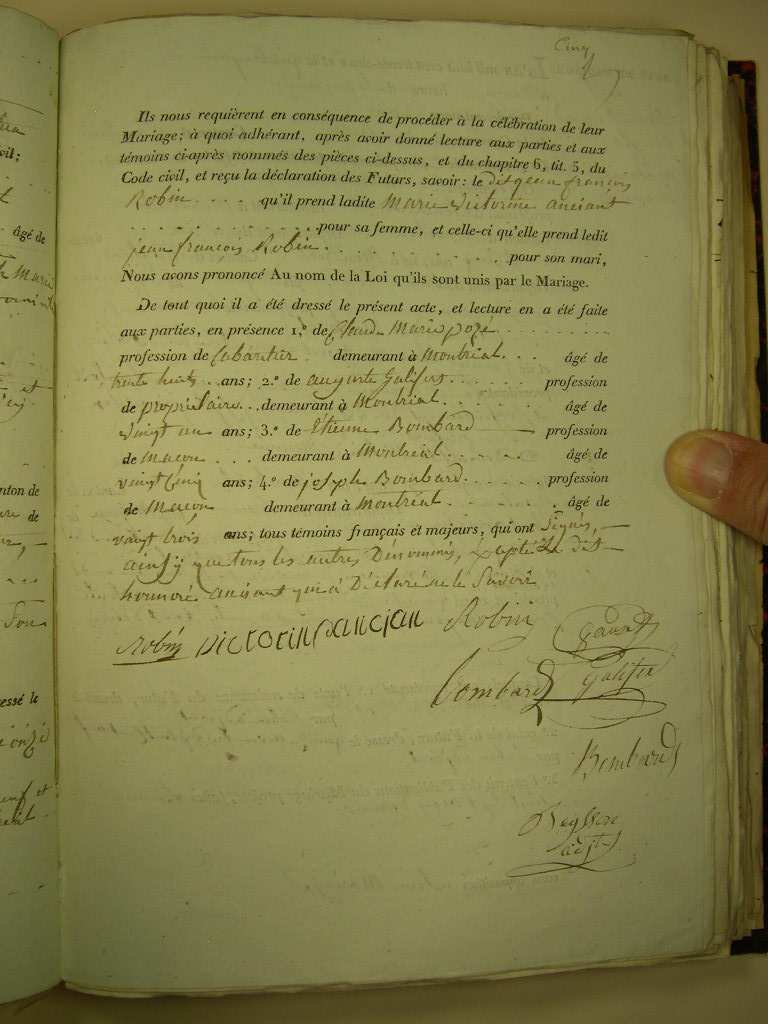 Cinq
Ils nous requièrent en conséquence de procéder à la célébration de leur
Mariage; à quoi adhérant, après avoir donné lecture aux parties et aux
témoins ci-après nommés des pièces ci-dessus, et du chapitre 6, tit. 5, du
Code civil, et reçu la déclaration des Futurs, savoir: le dit jean françois
Robin . . . . qu'il prend ladite Marie Victorine anciant
. . . . . . . . . . . . . pour sa femme, et celle-ci qu'elle prend ledit
jean françois Robin . . . . . . . . . . . pour son mari,
Nous avons prononcé Au nom de la Loi qu'ils sont unis par le Mariage.
De tout quoi il a été dressé le présent acte, et lecture en a été faite
aux parties, en présence 1.º de Claude Marie pozé . . . . . . . .
profession de Cabaretier demeurant à Montréal . . . âgé de
trente huit . . ans; 2.º de auguste Galifet . . . . . . profession
de propriétaire . . demeurant à Montréal . . . . . . âgé de
vingt un ans; 3.º de Etienne Bombard — profession
de Maçon . . . demeurant à Montréal . . . . . âgé de
vingt Cinq ans; 4.º de joseph Bombard . . . . . profession
de Maçon demeurant à Montréal . . . . . . âgé de
vingt trois ans; tous témoins français et majeurs, qui ont Signés, —
ainsy que tous les autres Denommés, le dit
honnoré anciant qui a Déclaré ne le Savoir
Robin victorin ancian Robin
bombard Galifet
Bombard
adjt
âgé de
nton de
de
essé le